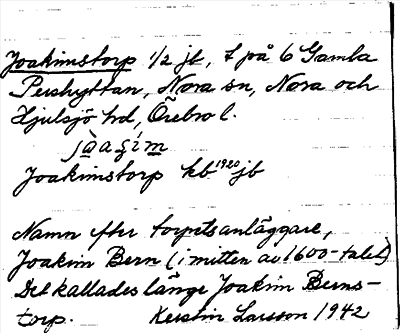 Joakimstorp 1/2 jb, t på 6 Gamla
Pershyttan, Nora sn, Nora och
Hjulsjö hd, Örebro l.
jòaǥím
Joakimstorp kb 1920 jb
Namn efter torpets anläggare,
Joakim Bern (i mitten av 1600-talet)
Det kallades länge Joakim Berns-
torp. Kerstin Larsson 1942